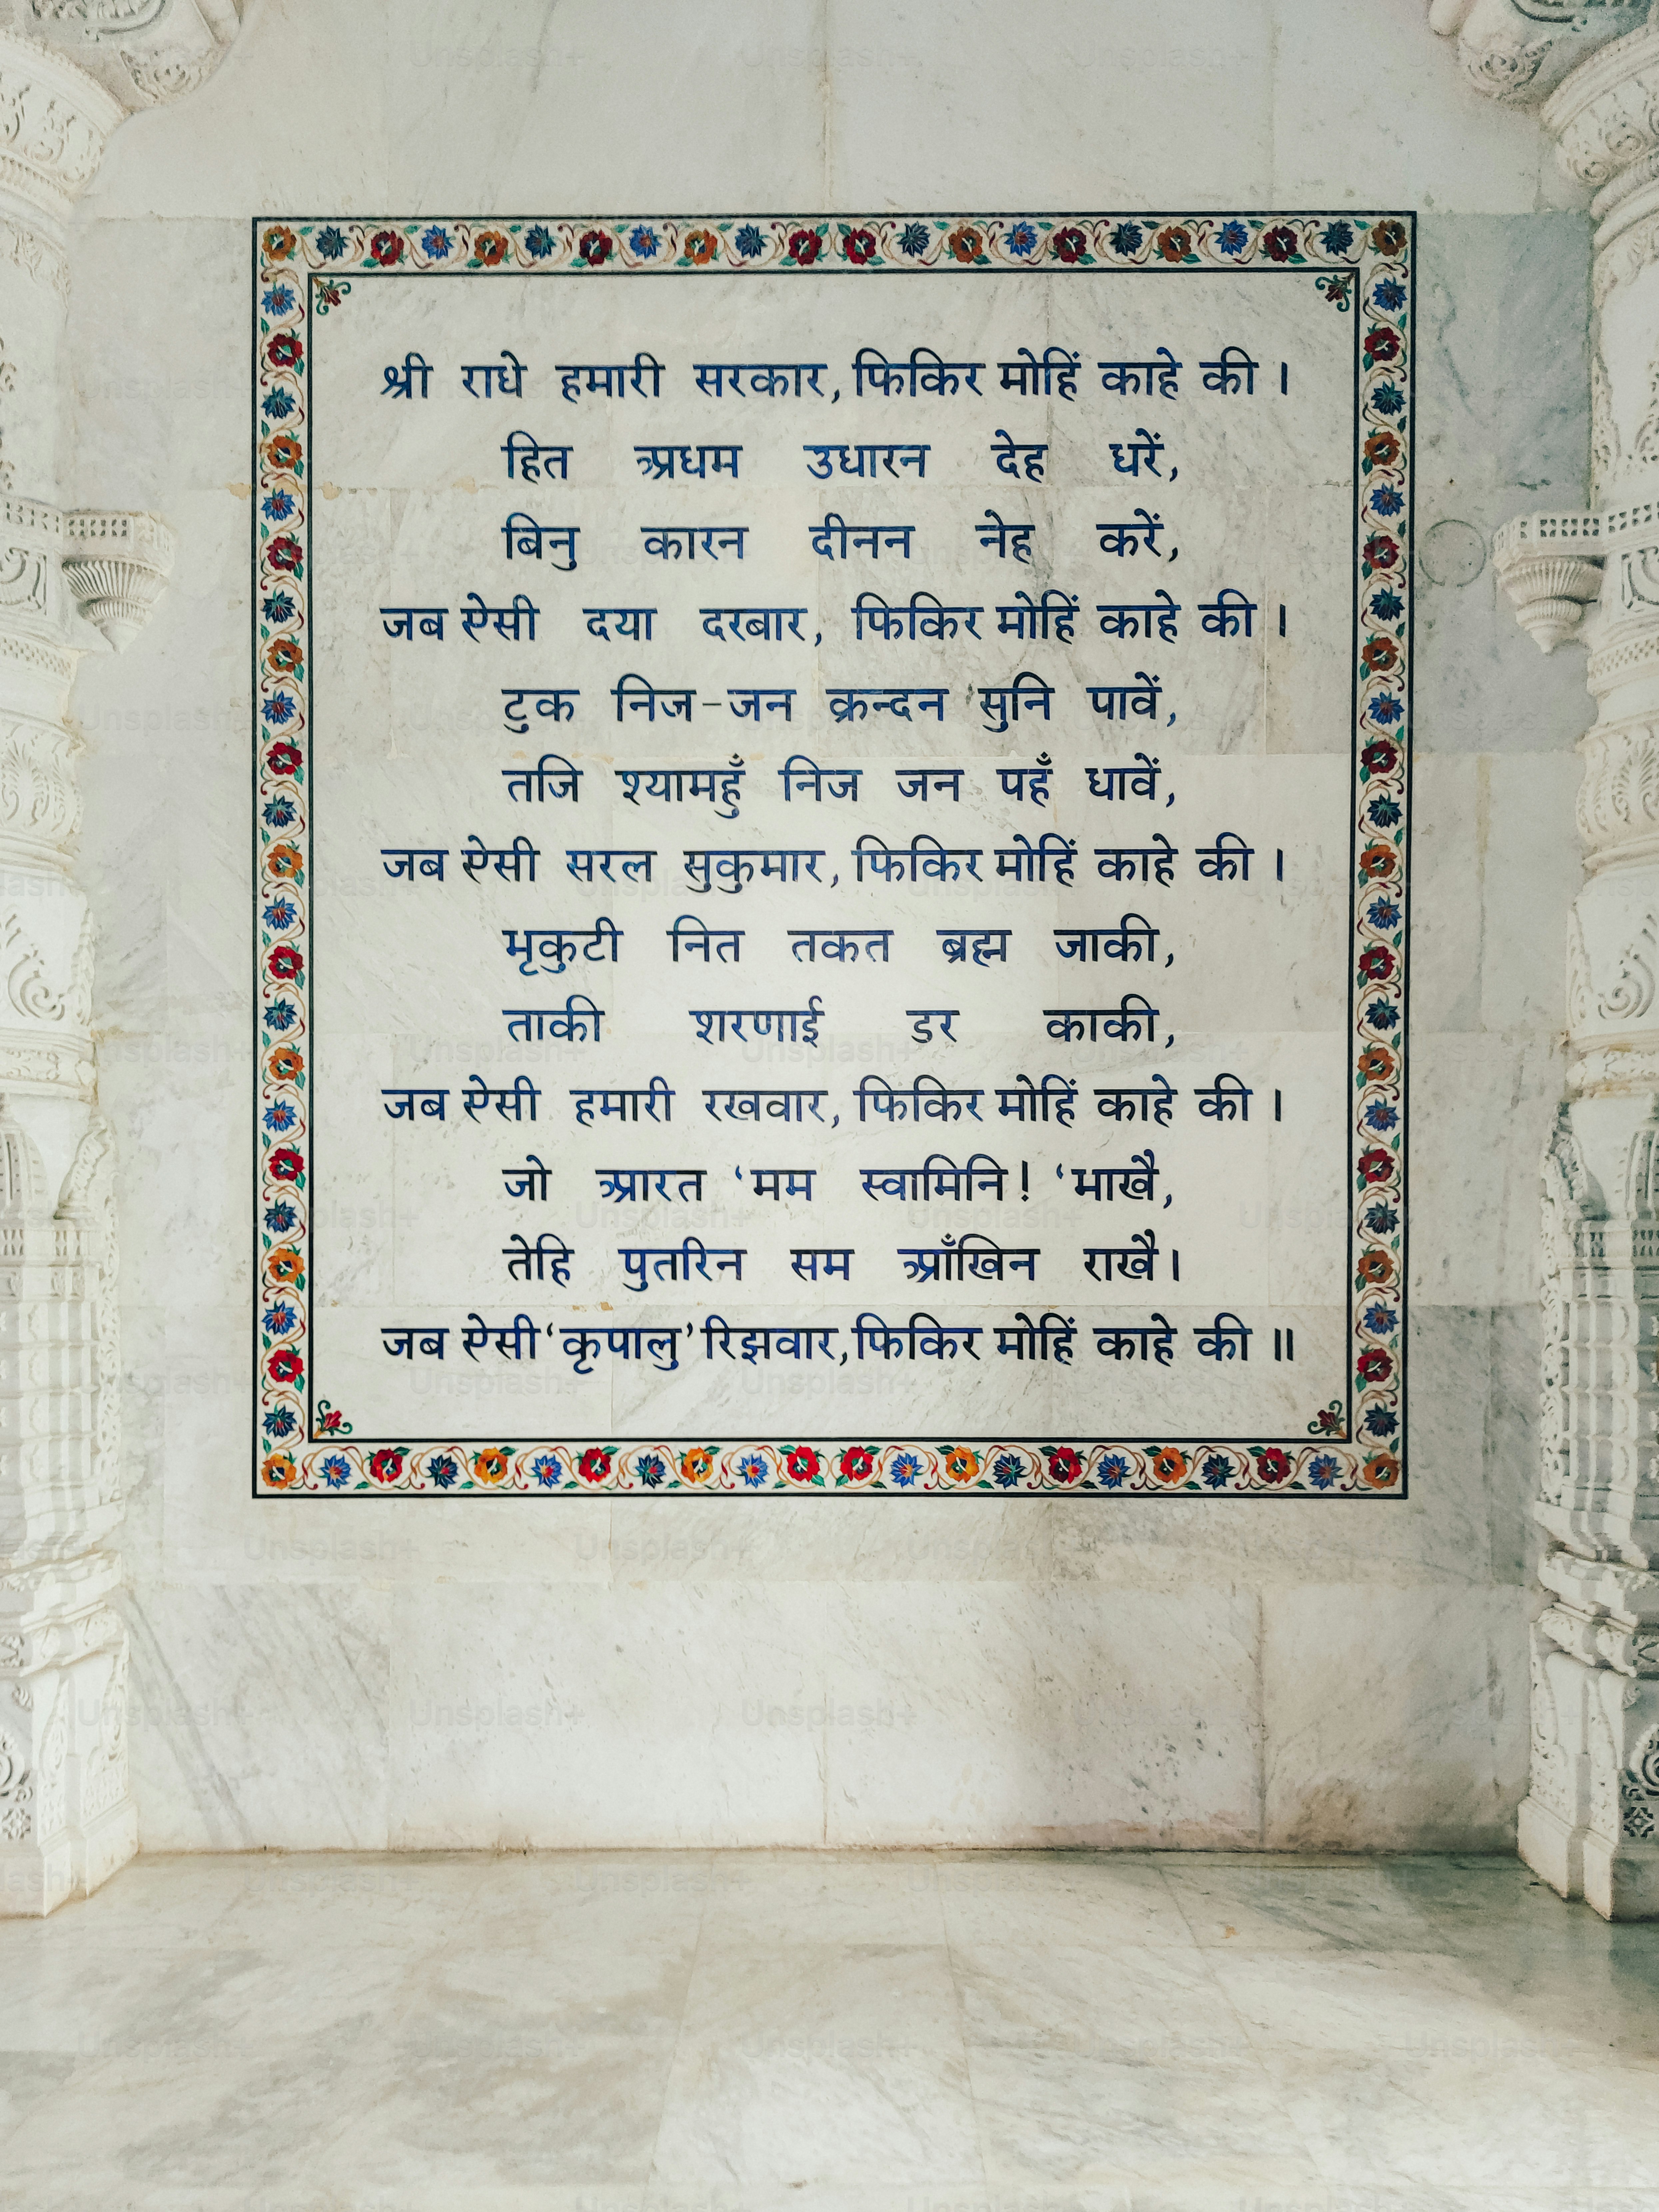 श्री राधे हमारी सरकार, फिकिर मोहिं काहे की ।
हित अधम उधारन देह धरें,
बिनु कारन दीनन नेह करें,
जब ऐसी दया दरबार, फिकिर मोहिं काहे की ।
टुक निज-जन क्रन्दन सुनि पावें,
तजि श्यामहुँ निज जन पहँ धावें,
जब ऐसी सरल सुकुमार, फिकिर मोहिं काहे की ।
भृकुटी नित तकत ब्रह्म जाकी,
ताकी शरणाई डर काकी,
जब ऐसी हमारी रखवार, फिकिर मोहिं काहे की ।
जो आरत ‘मम स्वामिनि! ‘भाखै,
तेहि पुतरिन सम आँखिन राखै।
जब ऐसी ‘कृपालु’ रिझवार, फिकिर मोहिं काहे की ॥
Unsplash+